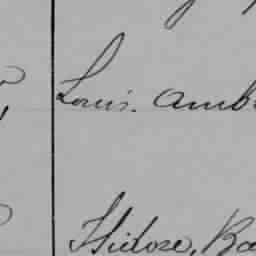 Louis. Amb
Isidore, Ba